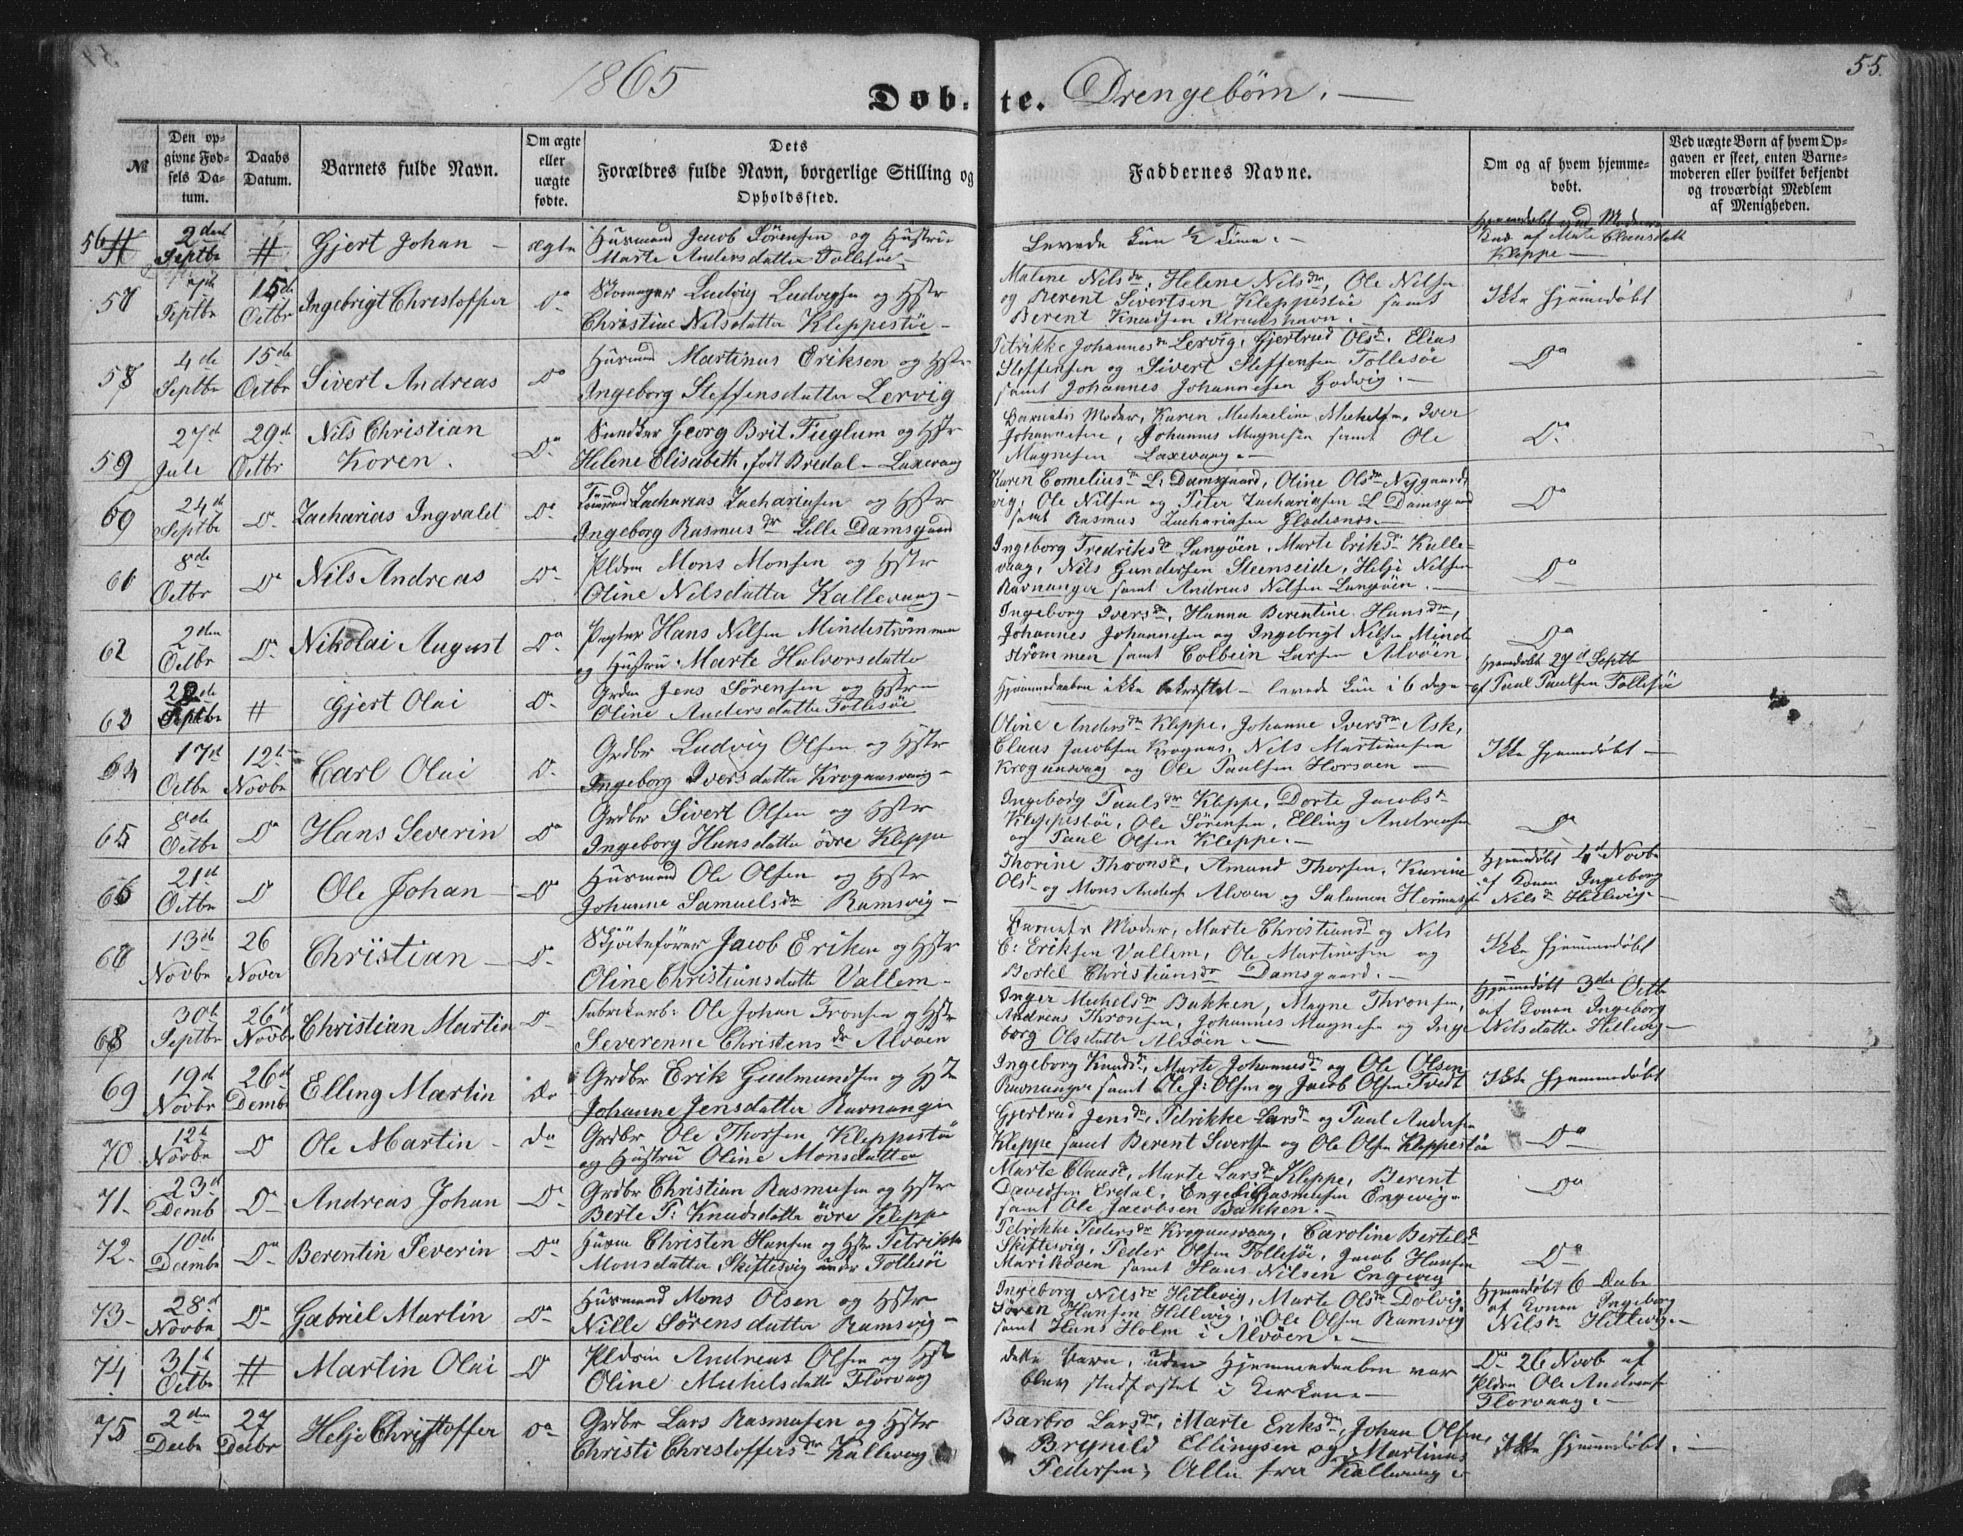 1865
Døbte. Drengebørn.
55.
№
Den opgivne Fødsels Datum.
Daabs Datum.
Barnets fulde Navn.
Om ægte eller uægte fødte.
Dets Forældres fulde Navn, borgerlige Stilling og Opholdssted.
Faddernes Navne.
Om og af hvem hjemmedøbt.
Ved uægte Børn af hvem Opgaven er skeet, enten Barnemoderen eller hvilket bekjendt og troværdigt Medlem af Menigheden.
56 2den Septbr # Gjert Johan ægte
Husmand Jacob Sørensen og Hustru
Marte Andersdatter Follesøe
Levede kun ½ Time.
Kleppe
57 Septbr 15de Octbr Ingebrigt Christoffer Do
Ludvig Ludvigsen og Hstr
Christine Nilsdatter Kleppestøe
Malene Nilsdr, Helene Nilsdr, Ole Nilsen
og Berent Sivertsen Kleppestøe samt
Berent Knudsen
Ikke hjemmedøbt
58 4de Septbr 15de Octbr Sivert Andreas Do
Husmand Martinus Eriksen og Hstr
Ingeborg Steffensdatter Lervig
Petrikke Johannesdr Lervig, Gjertrud Olsdr, Elias
Steffensen og Sivert Steffensen Follesøe
samt Johannes Johannesen Godvig.
Do
59 27d Juli 29d Octbr Nils Christian
Koren. Do
Georg Brit Fuglum og Hstr
Helene Elisabeth, født Bredal - Laxevaag
Barnets Moder, Karen Michaeline Michelsen, Iver
Johannesen, Johannes Magnesen samt Ole
Magnesen Laxevaag.
Do
60 24d Septbr Do Zacharias Ingvald Do
Zacharias Zachariasen og Hstr
Ingeborg Rasmusdr Lille Damsgaard
Karen Corneliusdr L. Damsgaard, Oline Olsdr Nygaards
vig, Ole Nilsen og Peter Zachariasen L Damsgaard
samt Rasmus Zachariasen
Do
61 8de Octbr Do Nils Andreas Do
Pldsm Mons Monsen og Hstr
Oline Nilsdatter Kallevaag
Ingeborg Fredriksdr Langøen, Marte Eriksdr Kalle-
vaag, Nils Gundersen Steenseide, Helje Nilsen
Ravnanger samt Andreas Nilsen Langøen.
Do
62 2den Octbr Do Nikolai August Do
Hans Nilsen Mindeströmmen
og Hustru Marte Halvorsdatter
Ingeborg Iversdr, Hanna Berentine Hansdr,
Johannes Johannesen og Ingebrigt Nilsen Minde
strömmen samt Colbein Larsen Alvøen
Do
63 Septbr # Gjert Olai Do
Jens Sørensen og Hstr
Oline Andersdatter Follesøe
Hjemmedaaben ikke bekræftet - levede kun i 6 Dage
Hjemmedøbt 29d Septbr
af Paul Paulsen Follesøe
64 17d Octbr 12te Novbr Carl Olai Do
Grdbr Ludvig Olsen og Hstr
Ingeborg Iversdatter Krogaasvaag
Oline Andersdr Kleppe, Johanne Iversdr Ask,
Claus Jacobsen Krogaas, Nils Martinusen
Krogaasvaag og Ole Paulsen Horsøen
Ikke hjemmedøbt
65 8de Octbr Do Hans Severin Do
Grdbr Sivert Olsen og Hstr
Ingeborg Hansdatter øvre Kleppe
Ingeborg Paulsdr Kleppe, Dorte Jacobsdr
Kleppestøe, Ole Sørensen, Elling Andreasen
og Paul Olsen Kleppe.
Do
66 21d Octbr Do Ole Johan Do
Husmand Ole Olsen og Hstr
Johanne Samuelsdr Ramsvig
Thorine Thronsdr, Amund Thorsen, Karine
Olsdr og Mons Anders Alvøen og Salamon
Hjemmedøbt 4d Novbr
af Konen Ingeborg
Nilsdr Hillevig
67 13d Novbr 26 Novbr Christian Do
Jacob Eriksen og Hstr
Oline Christiansdatter Vallem
Barnets Moder, Marte Christiansdr og Nils
E: Eriksen Vallem, Ole Martinusen og
Bertel Christiansdr Damsgaard.
Ikke hjemmedøbt
68 30te Septbr 26d Novbr Christian Martin Do
Fabrikarb: Ole Johan Tronsen og Hstr
Severenne Christensdr Alvøen
Inger Michelsdr Bakken, Magne Thronsen,
Andreas Thronsen, Johannes Magnesen og Inge
borg Olsdatter Alvøen.
Hjemmedøbt 3die Octbr
af Konen Ingeborg
Nilsdatter Hillevig
69 19d Novbr 26d Decmbr Elling Martin Do
Grdbr Erik Gudmundsen og Hstr
Johanne Jensdatter Ravnanger
Ingeborg Knudsdr, Marte Johannesdr og Ole Olsen
Ravnanger samt Ole J: Olsen og Jacob Olsen Tvedt
Ikke hjemmedøbt
70 12te Novbr Do Ole Martin Do
Grdbr Ole Thorsen Kleppestøe
og Hustru Oline Monsdatter
Gjertrud Jensdr, Petrikke Larsdr og Paul Andersen
Kleppe samt Berent Sivertsen og Ole Olsen Kleppestøe
Do
71. 23d Decmb Do Andreas Johan Do
Grdbr Christian Rasmusen og Hstr
Berte T: Knudsdatter øvre Kleppe
Marte Clausdr, Marte Larsdr Kleppe, Berent
Davidsen Erdal, Rasmusen Engevig
samt Ole Jacobsen Bakken.
Do
72. 10d Decmbr Do Berentin Severin Do
Husm Christen Hansen og Hstr Petrikke
Monsdatter, Skiftesvig under Follesøe
Petrikke Pedersdr Krogaasvaag, Carolina Bertelsdr
Skiftesvig, Peder Olsen Follesøe, Jacob Hansen
Marikoven samt Hans Nilsen Engevig
Do
73. 28d Novbr Do Gabriel Martin Do
Husmand Mons Olsen og Hstr
Nille Sørensdatter Ramsvig
Ingeborg Nilsdr Hillevig, Marte Olsdr Dolvig,
Søren Hansen Hillevig, Ole Olsen Ramsvig
samt Hans Holm i Alvøen.
Hjemmedøbt 6 Decbr
af Konen Ingeborg
Nilsdr Hillevig.
74 31te Octbr # Martin Olai Do
Pldsm Andreas Olsen og Hstr
Oline Michelsdatter Florvaag
dette Barn, uden Hjemmedaaben var
blev stadfæstet i Kirken
Do 26 Novb af
Pldsm Ole Andreas
Florvaag.
75 2den Decbr 27 Decbr Helje Christoffer Do
Grdbr Lars Rasmusen og Hstr
Christi Christoffersdr Kallevaag
Barbro Larsdr, Marte Eriksdr, Johan Olsen,
Brynild Ellingsen og Martinus
Pedersen, Alle fra Kallevaag
Ikke hjemmedøbt.